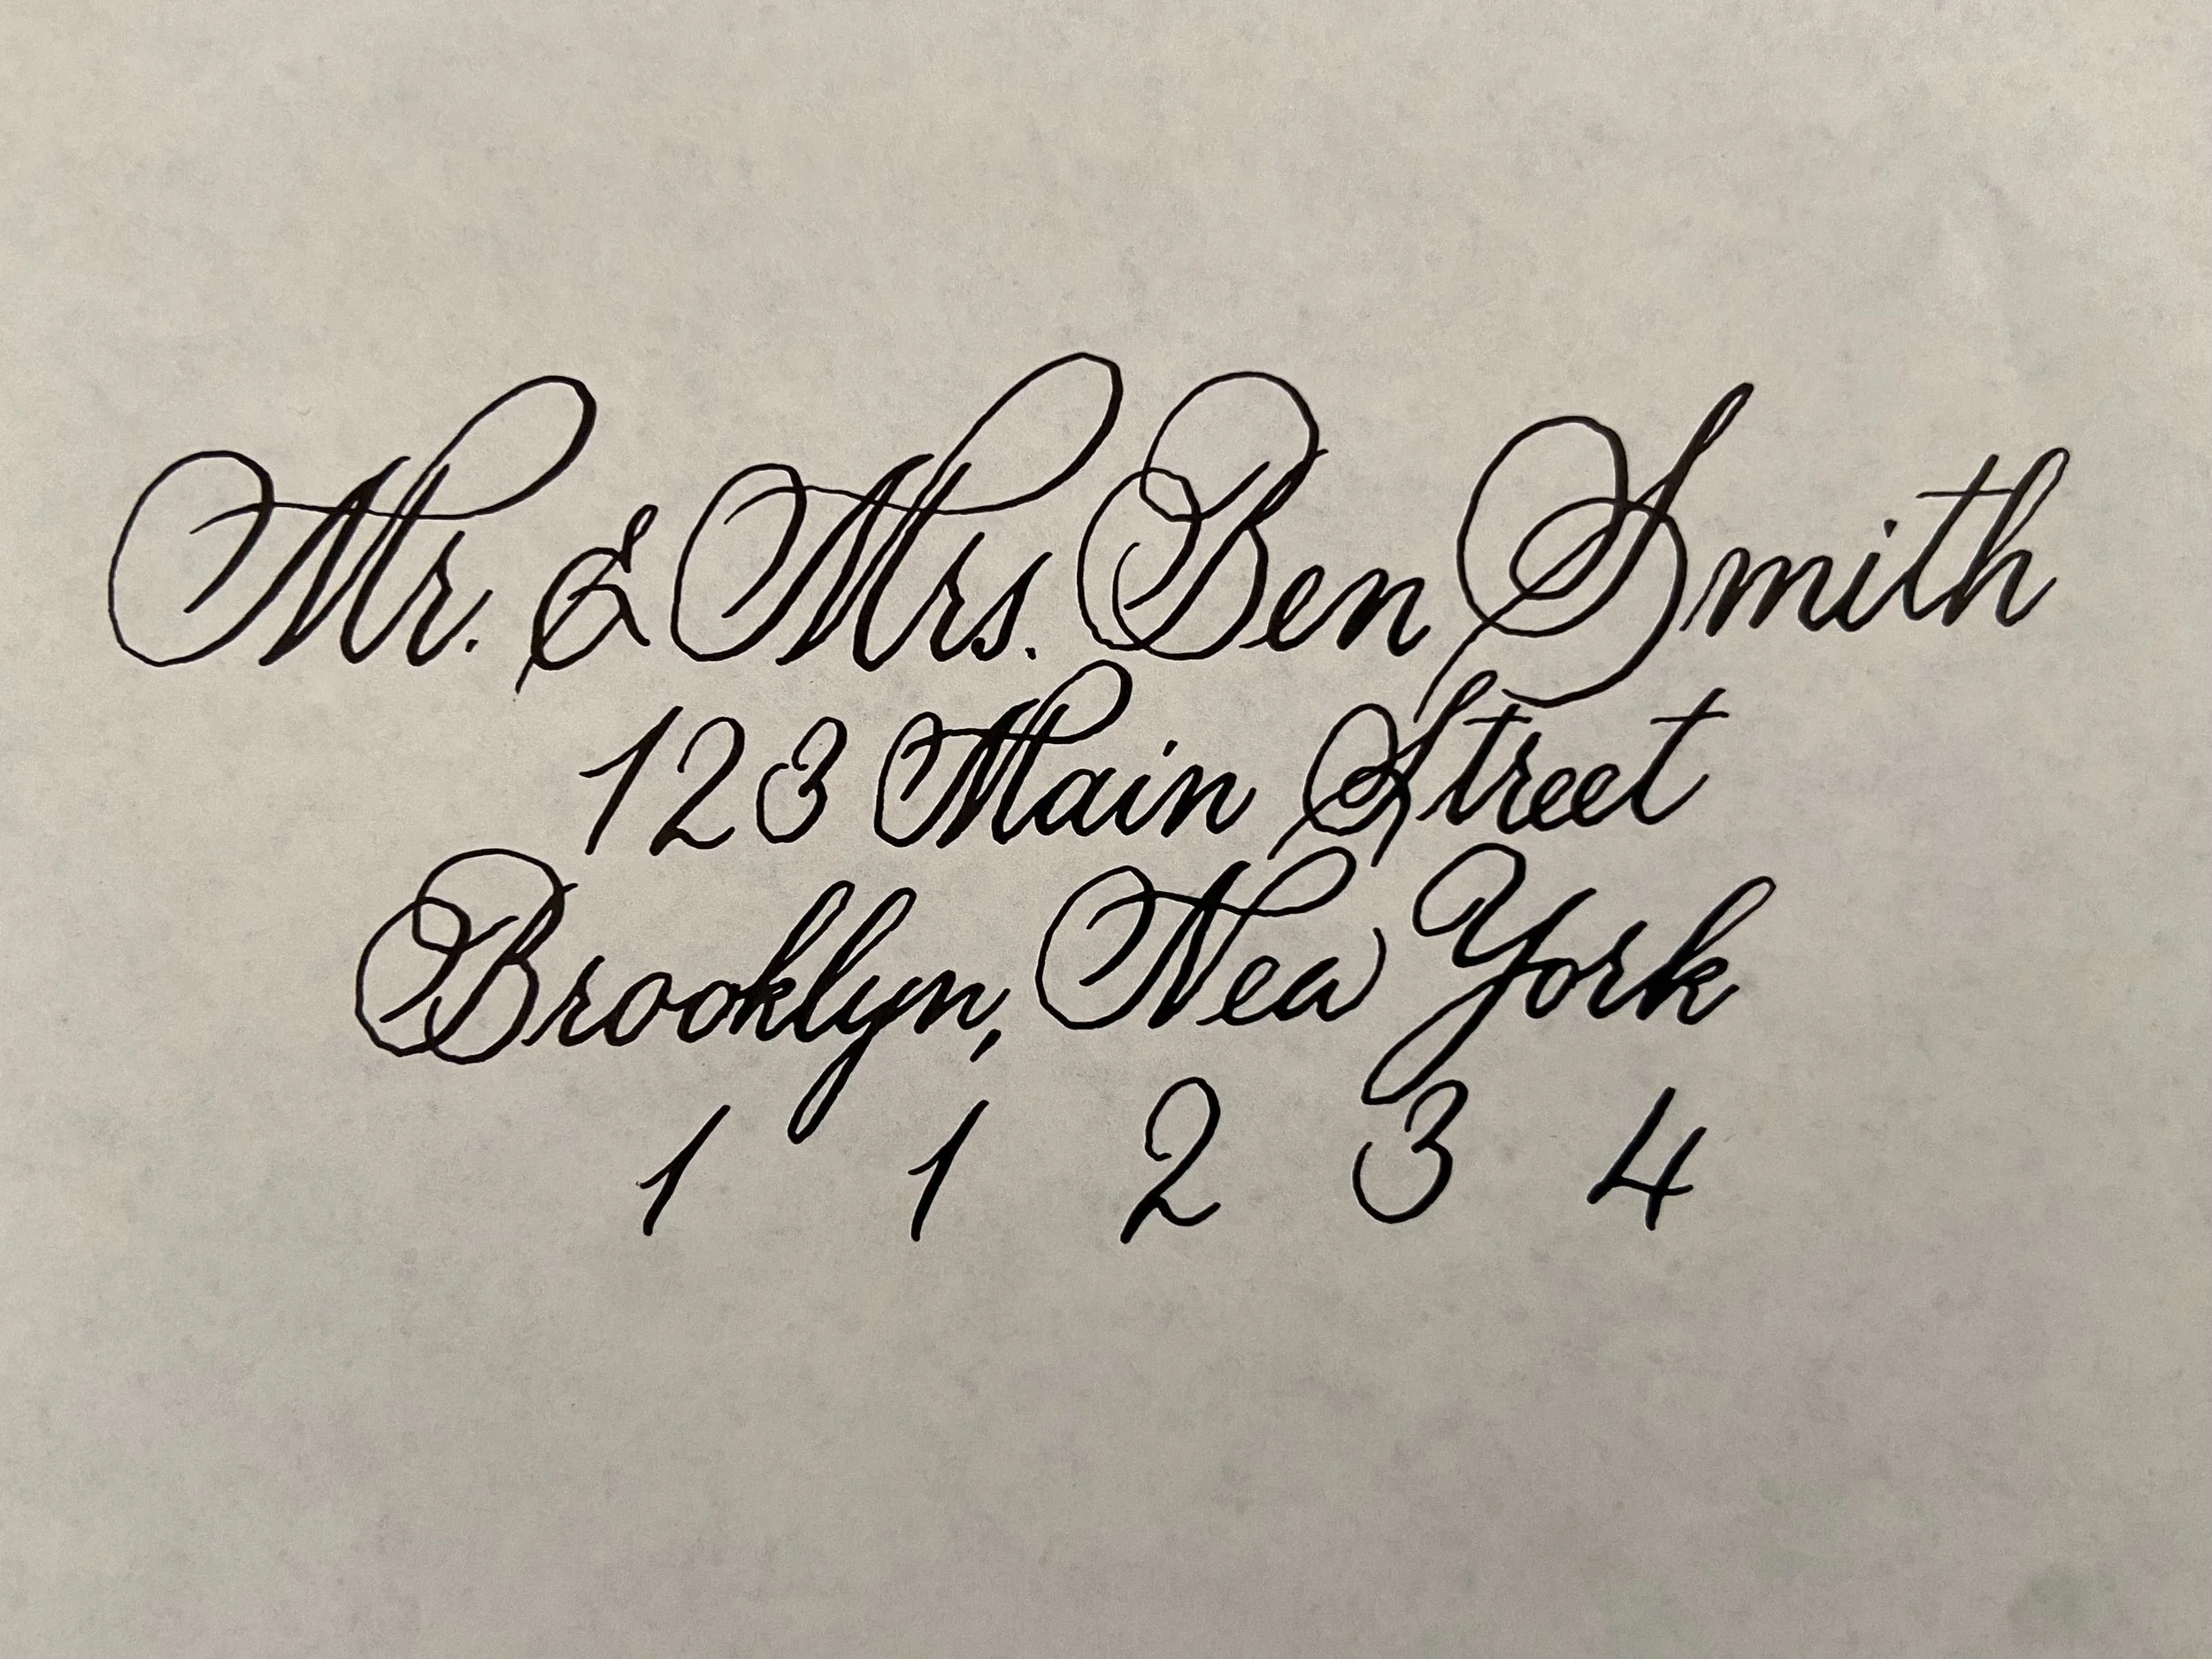 Mr. & Mrs. Ben Smith
123 Main Street
Brooklyn, New York
1 1 2 3 4